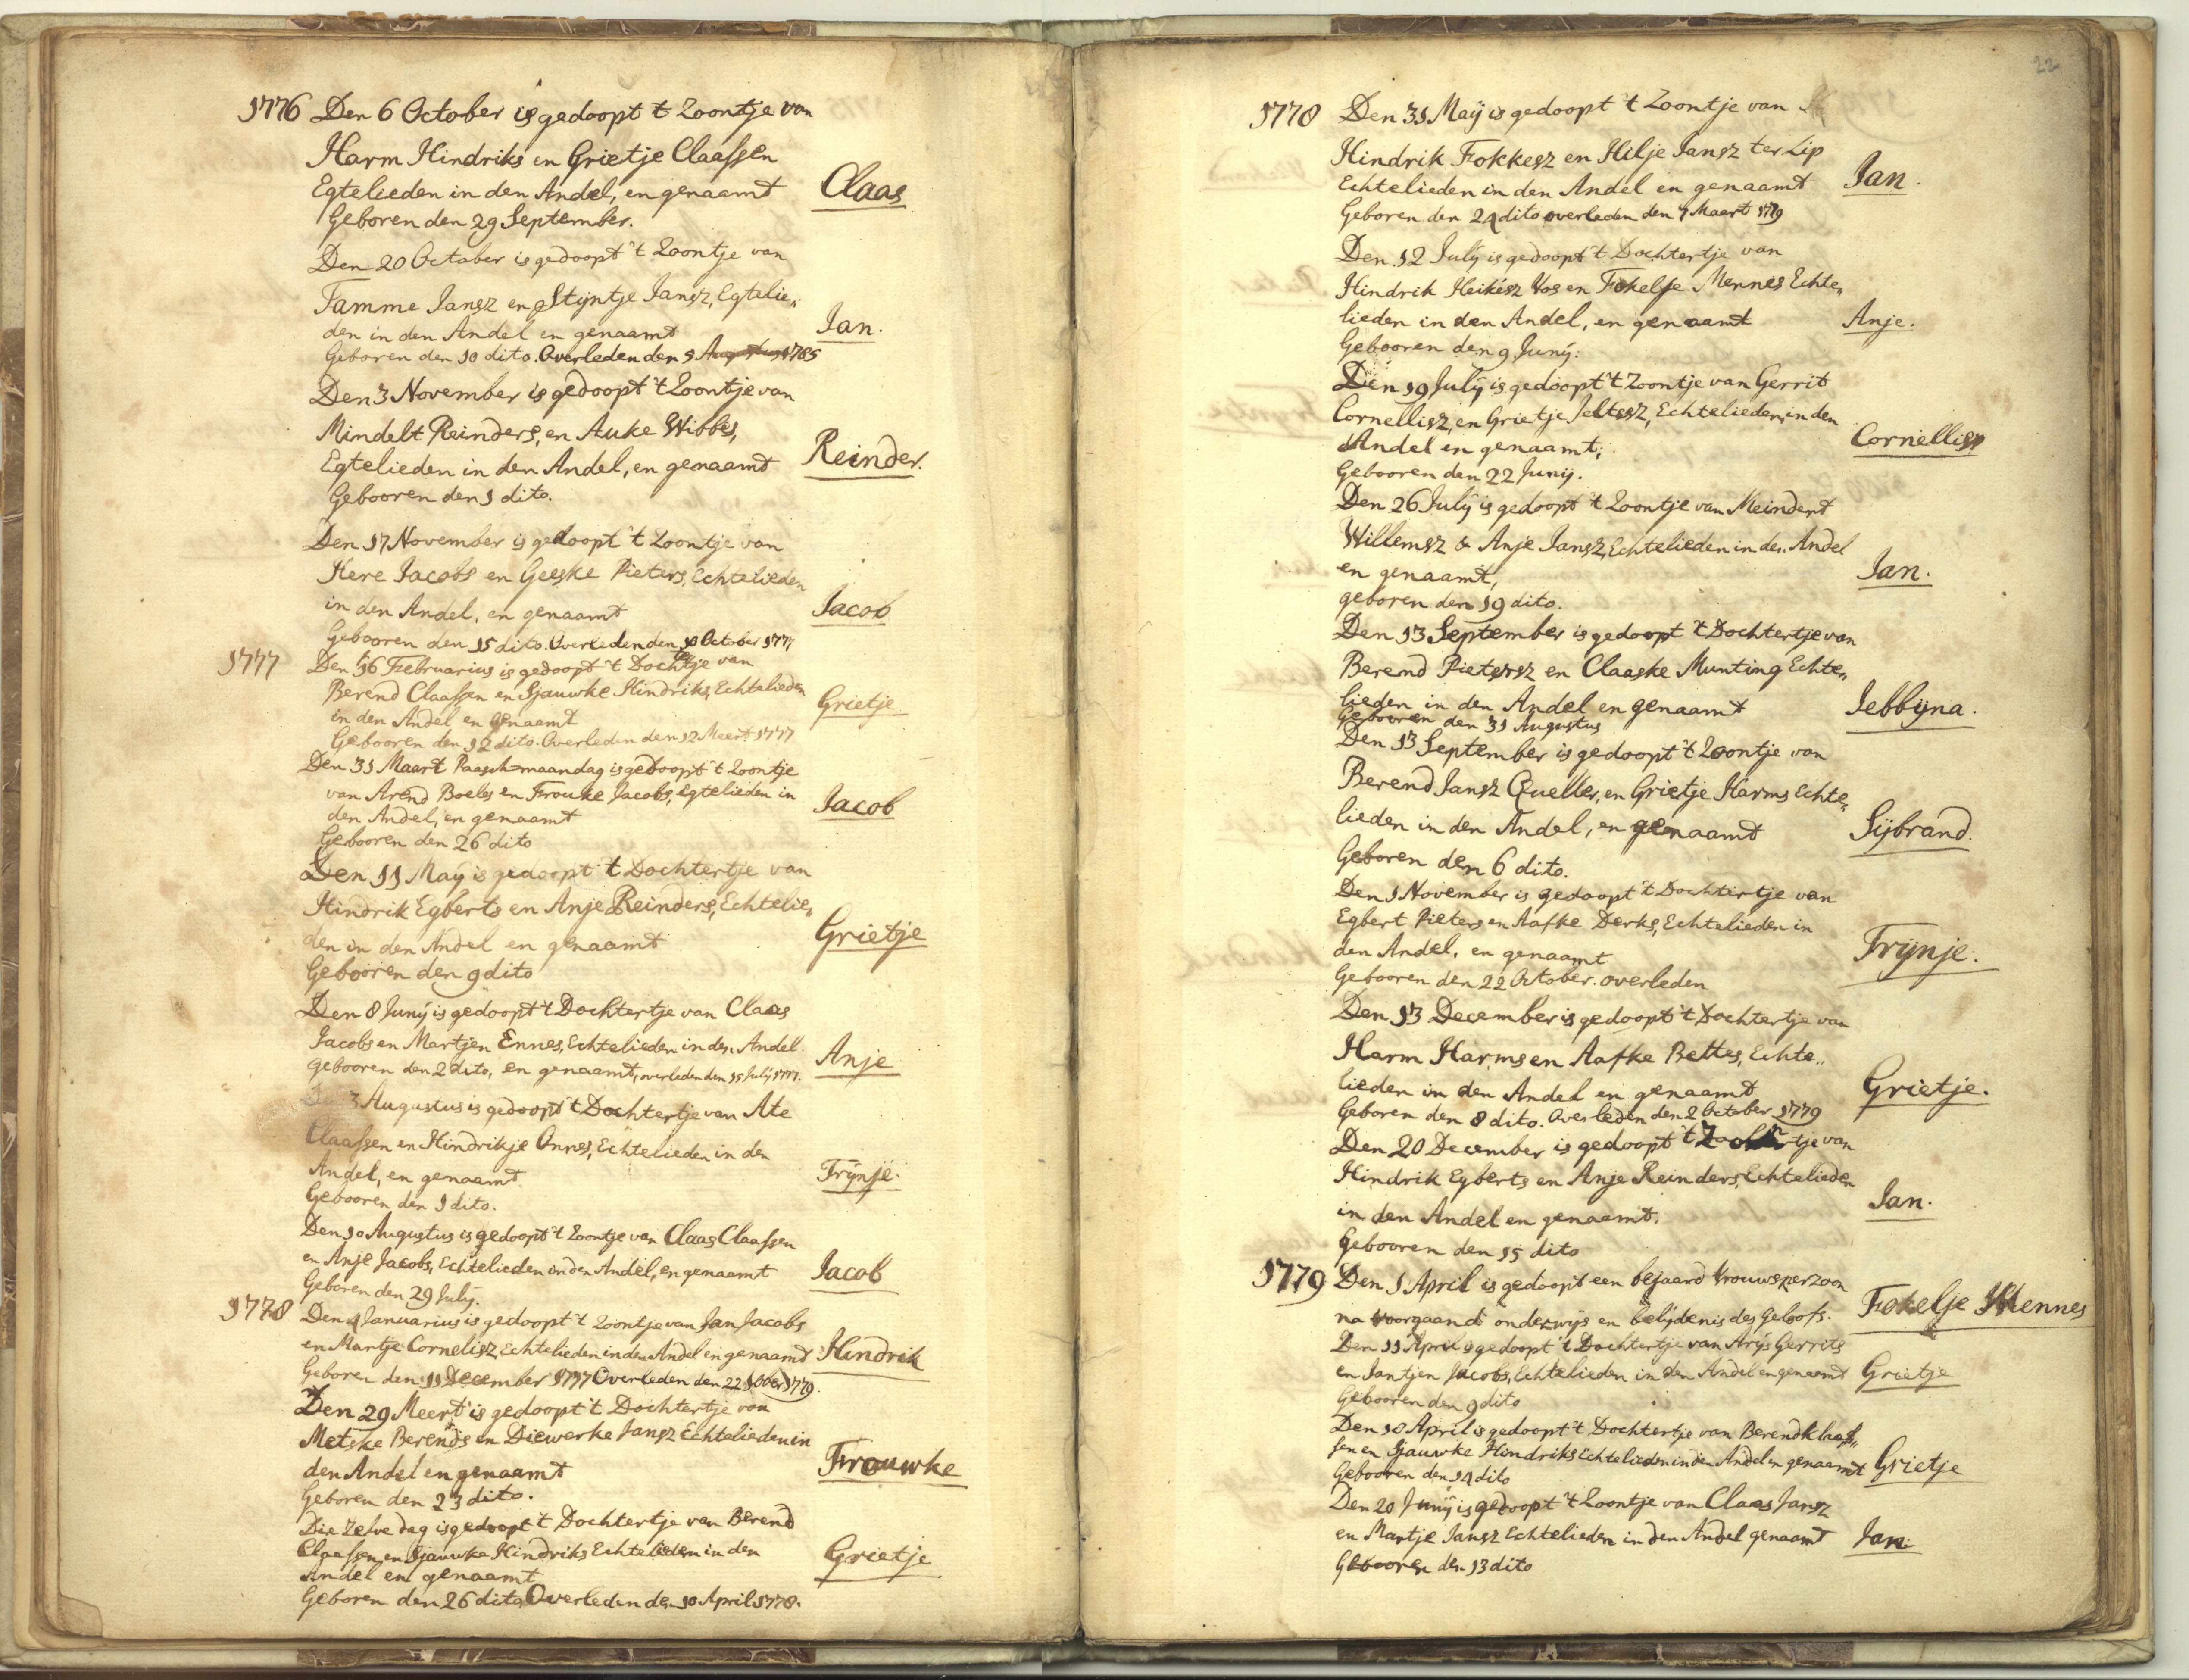 1776 Den 6 October is gedoopt 't Zoontje van
Harm Hindriks en Grietje Claassen
Egtelieden in den Andel, en genaamt Claas
Geboren den 29 September.
Den 20 October is gedoopt 't Zoontje van
Tamme Jansz en Stijntje Jansz, Egtelie„
den in den Andel en genaamt Jan.
Geboren den 10 dito. Overleden den 5 Augustus 1785
Den 3 November is gedoopt 't Zoontje van
Mindelt Reinders, en Auke Wibbes,
Egtelieden in den Andel, en genaamt Reinder.
Gebooren den 1 dito.
Den 17 November is gedoopt 't Zoontje van
Here Jacobs en Geeske Pieters, Echtelieden
in den Andel, en genaamt Jacob
Gebooren den 15 dito. Overleden den 10 October 1777
1777 Den 16 Februarius is gedoopt 't Dochtertje van
Berend Claassen en Sjauwke Hindriks, Echtelieden
in den Andel en genaamt Grietje
Gebooren den 12 dito. Overleden den 12 Meert 1777
Den 31 Maart Paasch=maandag is gedoopt 't Zoontje
van Arend Boeles en Frouke Jacobs, Egtelieden in
den Andel, en genaamt Jacob
Gebooren den 26 dito
Den 11 Maÿ is gedoopt 't Dochtertje van
Hindrik Egberts en Anje Reinders, Echtelie„
den in den Andel en genaamt Grietje
Gebooren den 9 dito
Den 8 Junÿ is gedoopt 't Dochtertje van Claas
Jacobs en Martjen Ennes, Echtelieden in den Andel. Anje
gebooren den 2 dito, en genaamt, overleden den 15 Julÿ 1777.
Den 3 Augustus is gedoopt 't Dochtertje van Ate
Claassen en Hindrikje Onnes, Echtelieden in den
Andel, en genaamt Trÿnje.
Gebooren den 1 dito.
Den 10 Augustus is gedoopt 't Zoontje van Claas Claassen
en Anje Jacobs, Echtelieden in den Andel, en genaamt Jacob
Geboren den 29 Julÿ.
1778 Den 4 Januarius is gedoopt 't Zoontje van Jan Jacobs
en Martje Cornelisz, Echtelieden in den Andel en genaamt Hindrik
Geboren den 11 December 1777 Overleden den 22 1779.
Den 29 Meert is gedoopt 't Dochtertje van
Metske Berends en Diewerke Jansz Echtelieden in
den Andel en genaamt Frouwke
Geboren den 23 dito.
Die zelve dag is gedoopt 't Dochtertje van Berend
Claassen en Sjauwke Hindriks Echtelieden in den
Andel en genaamt Grietje
Geboren den 26 dito Overleden den 10 April 1778.
22
1778 Den 31 Maÿ is gedoopt 't Zoontje van
Hindrik Fokkesz en Hilje Jansz ter Zip
Echtelieden in den Andel en genaamt Jan.
Geboren den 24 dito overleden den 7 Maart 1779
Den 12 Julÿ is gedoopt 't Dochtertje van
Hindrik Heikesz Vos en Fokelje Mennes Echte„
lieden in den Andel, en genaamt Anje.
Gebooren den 9 Junÿ.
Den 19 Julÿ is gedoopt 't Zoontje van Gerrit
Cornellisz, en Grietje Jeltesz, Echtelieden in den
Andel en genaamt, Cornellis
Gebooren den 22 Junij.
Den 26 Julÿ is gedoopt 't Zoontje van Meindert
Willemsz & Anje Jansz, Echtelieden in den Andel
en genaamt, Jan.
geboren den 19 dito.
Den 13 September is gedoopt 't Dochtertje van
Berend Pietersz en Claaske Munting Echte„
lieden in den Andel en genaamt Jebbijna.
Gebooren den 31 Augustus
Den 13 September is gedoopt 't Zoontje van
Berend Jansz Queller, en Grietje Harms Echte„
lieden in den Andel, en genaamt Sijbrand.
Geboren den 6 dito.
Den 1 November is gedoopt 't Dochtertje van
Egbert Pieters en Aafke Derks, Echtelieden in
den Andel, en genaamt Trÿnje.
Gebooren den 22 October. overleden
Den 13 December is gedoopt 't Dochtertje van
Harm Harms en Aafke Bettes, Echte„
lieden in den Andel en genaamt Grietje.
Geboren den 8 dito. Overleden den 2 October 1779
Den 20 December is gedoopt 't van
Hindrik Egberts en Anje Reinders, Echtelieden
in den Andel en genaamt. Jan.
Gebooren den 15 dito
1779 Den 1 April is gedoopt een bejaard Vrouwsperzoon
na voorgaand onderwijs en belijdenis des Geloofs. Fokelje Mennes
Den 11 April is gedoopt 't Dochtertje van Arÿs Gerrits
en Jantjen Jacobs, Echtelieden in den Andel en genaamt Grietje
Gebooren den 9 dito
Den 18 April is gedoopt 't Dochtertje van Berend Klaas„
sen en Sjauwke Hindriks Echtelieden in den Andel en genaamt Grietje
Gebooren den 14 dito
Den 20 Junÿ is gedoopt 't Zoontje van Claas Jansz
en Martje Jansz Echtelieden in den Andel genaamt Jan.
Gebooren den 13 dito